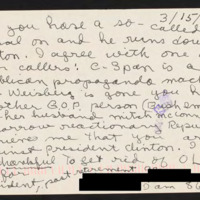 3/15/
you have a so-called
al on and he runs dow
ton. I agree with one
callers: C-Span is a
blican propaganda mach
Weisberg is gone you h
other G.O.P. person
her husband mitch mcconn
arrow reactionary Repu
me that you are
inst president clinton. I
thankful to get rid of
ident, part
I am 86